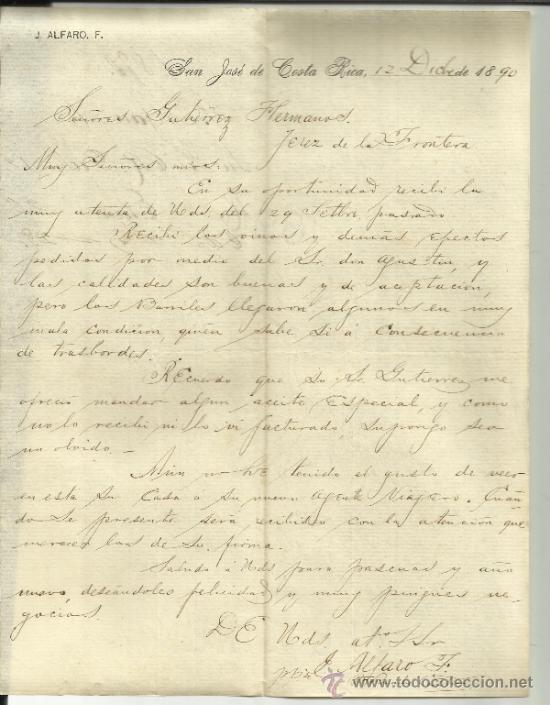 J. ALFARO, F.
San José de Costa Rica, 12 Dicbe de 1890
Señores Gutiérrez Hermanos.
Jerez de la Frontera
Muy Señores mios:
En su oportunidad recibi la
muy atenta de Uds. del 29 Setbre. pasado
Recibi los vinos y demás efectos
pedidos por medio del Sr. don Agustin, y
las calidades son buenas y de aceptacion,
pero los Barriles llegaron algunos en muy
mala condicion, quien sabe si á consecuencia
de trasbordes.
Recuerdo que Su Sr. Gutierrez me
ofreció mandar algun aceite Especial, y como
no lo recibi ni lo vi facturado, supongo sea
un olvido. —
Aun no hé tenido el gusto de veer
en esta Su Casa a Su nuevo Agente Viajero. Cuan-
do Se presente será recibido con la atencion que
merecen las de Su firma.
Saludo á Uds para pascuas y año
nuevo, deseándoles felicidad y muy pingües ne-
gocios.
DE Uds. atº. S Sr
J. Alfaro F.
www.todocoleccion.net